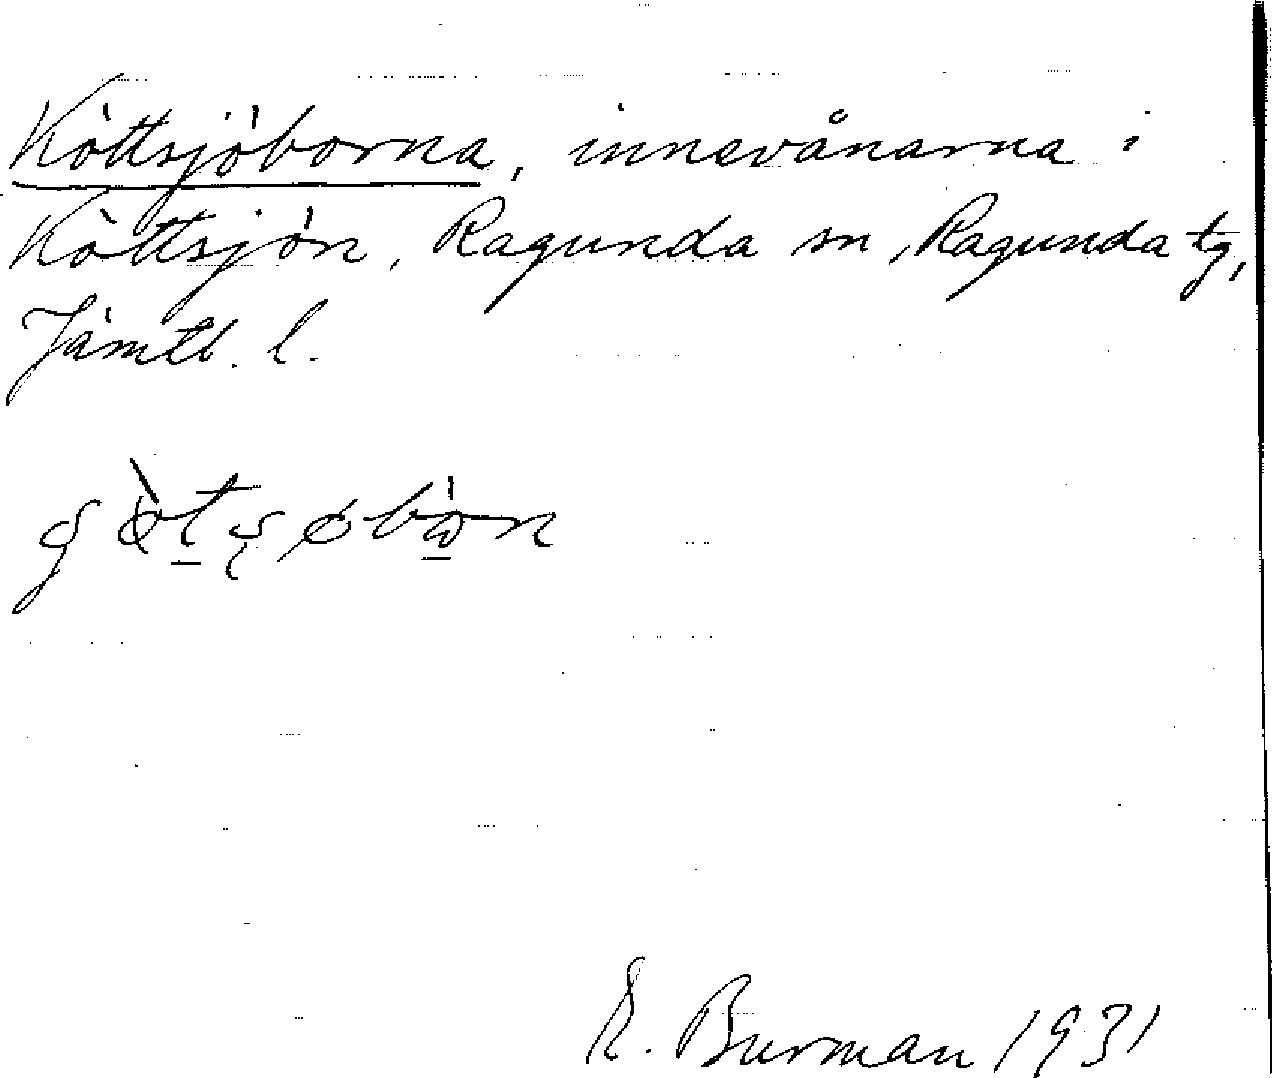 Köttsjöborna, innevånarna i
Köttsjön, Ragunda sn, Ragunda tg,
Jämtl. l.
E. Burman 1931